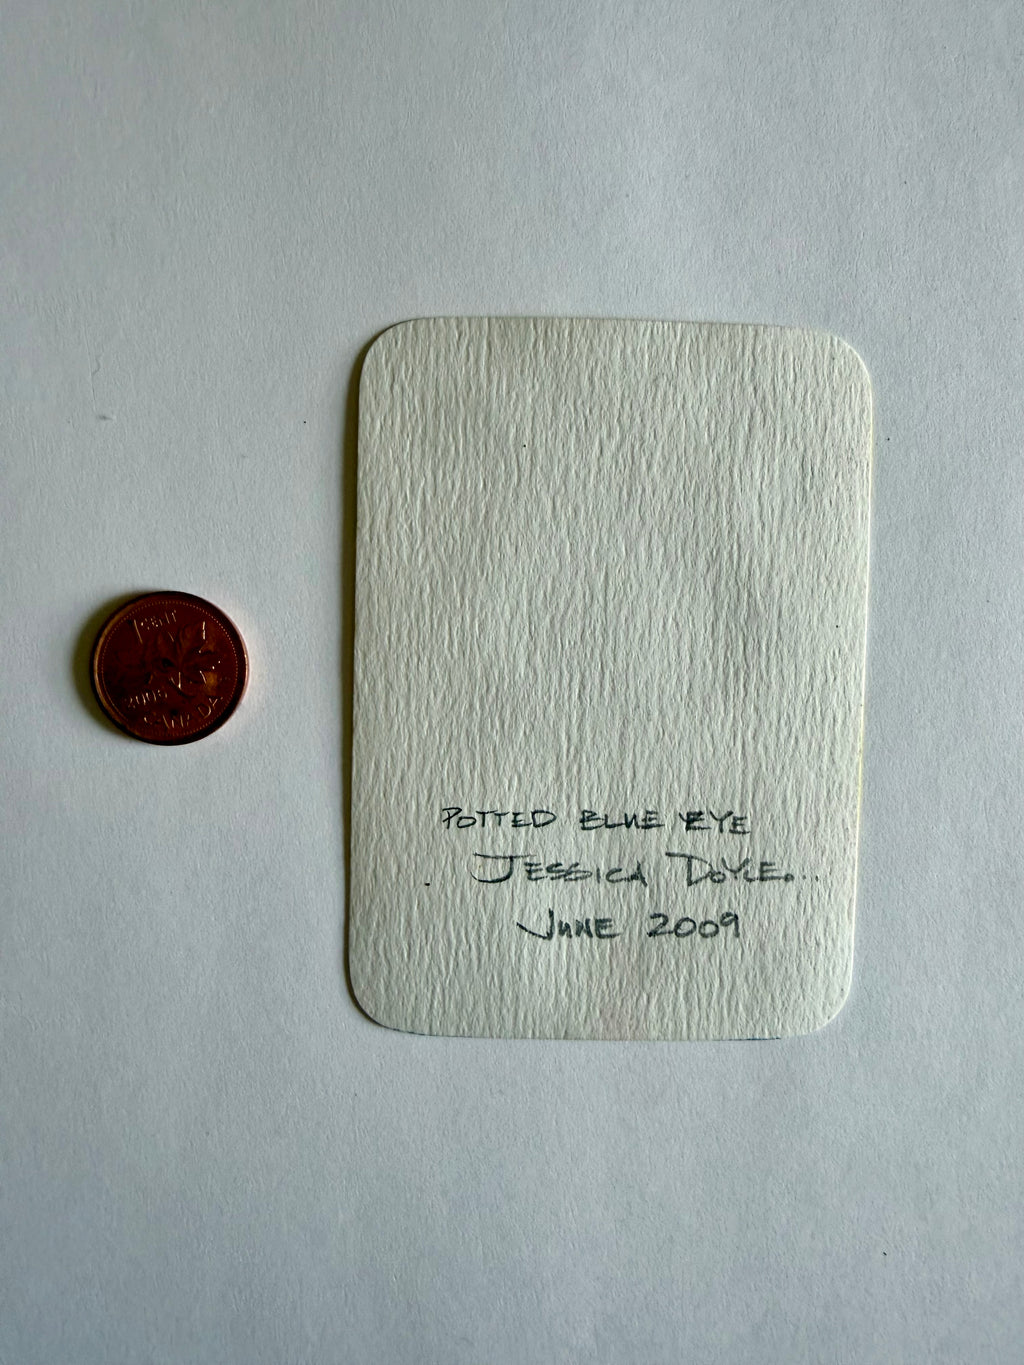 POTTED BLUE EYE
JESSICA DOYLE...
JUNE 2009
1 cent
2006
CANADA